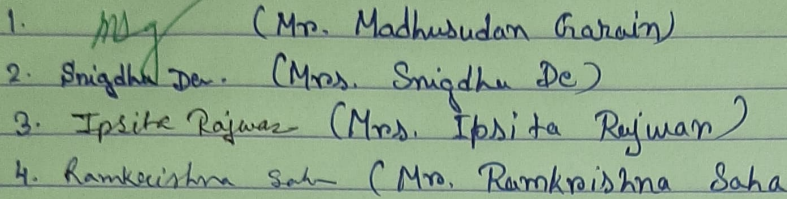 1. (Mr. Madhusudan Garain)
2. Snigdha De. (Mrs. Snigdha De)
3. Ipsita Rajwar (Mrs. Ipsita Rajwar)
4. Ramkrishna Saha (Mr. Ramkrishna Saha